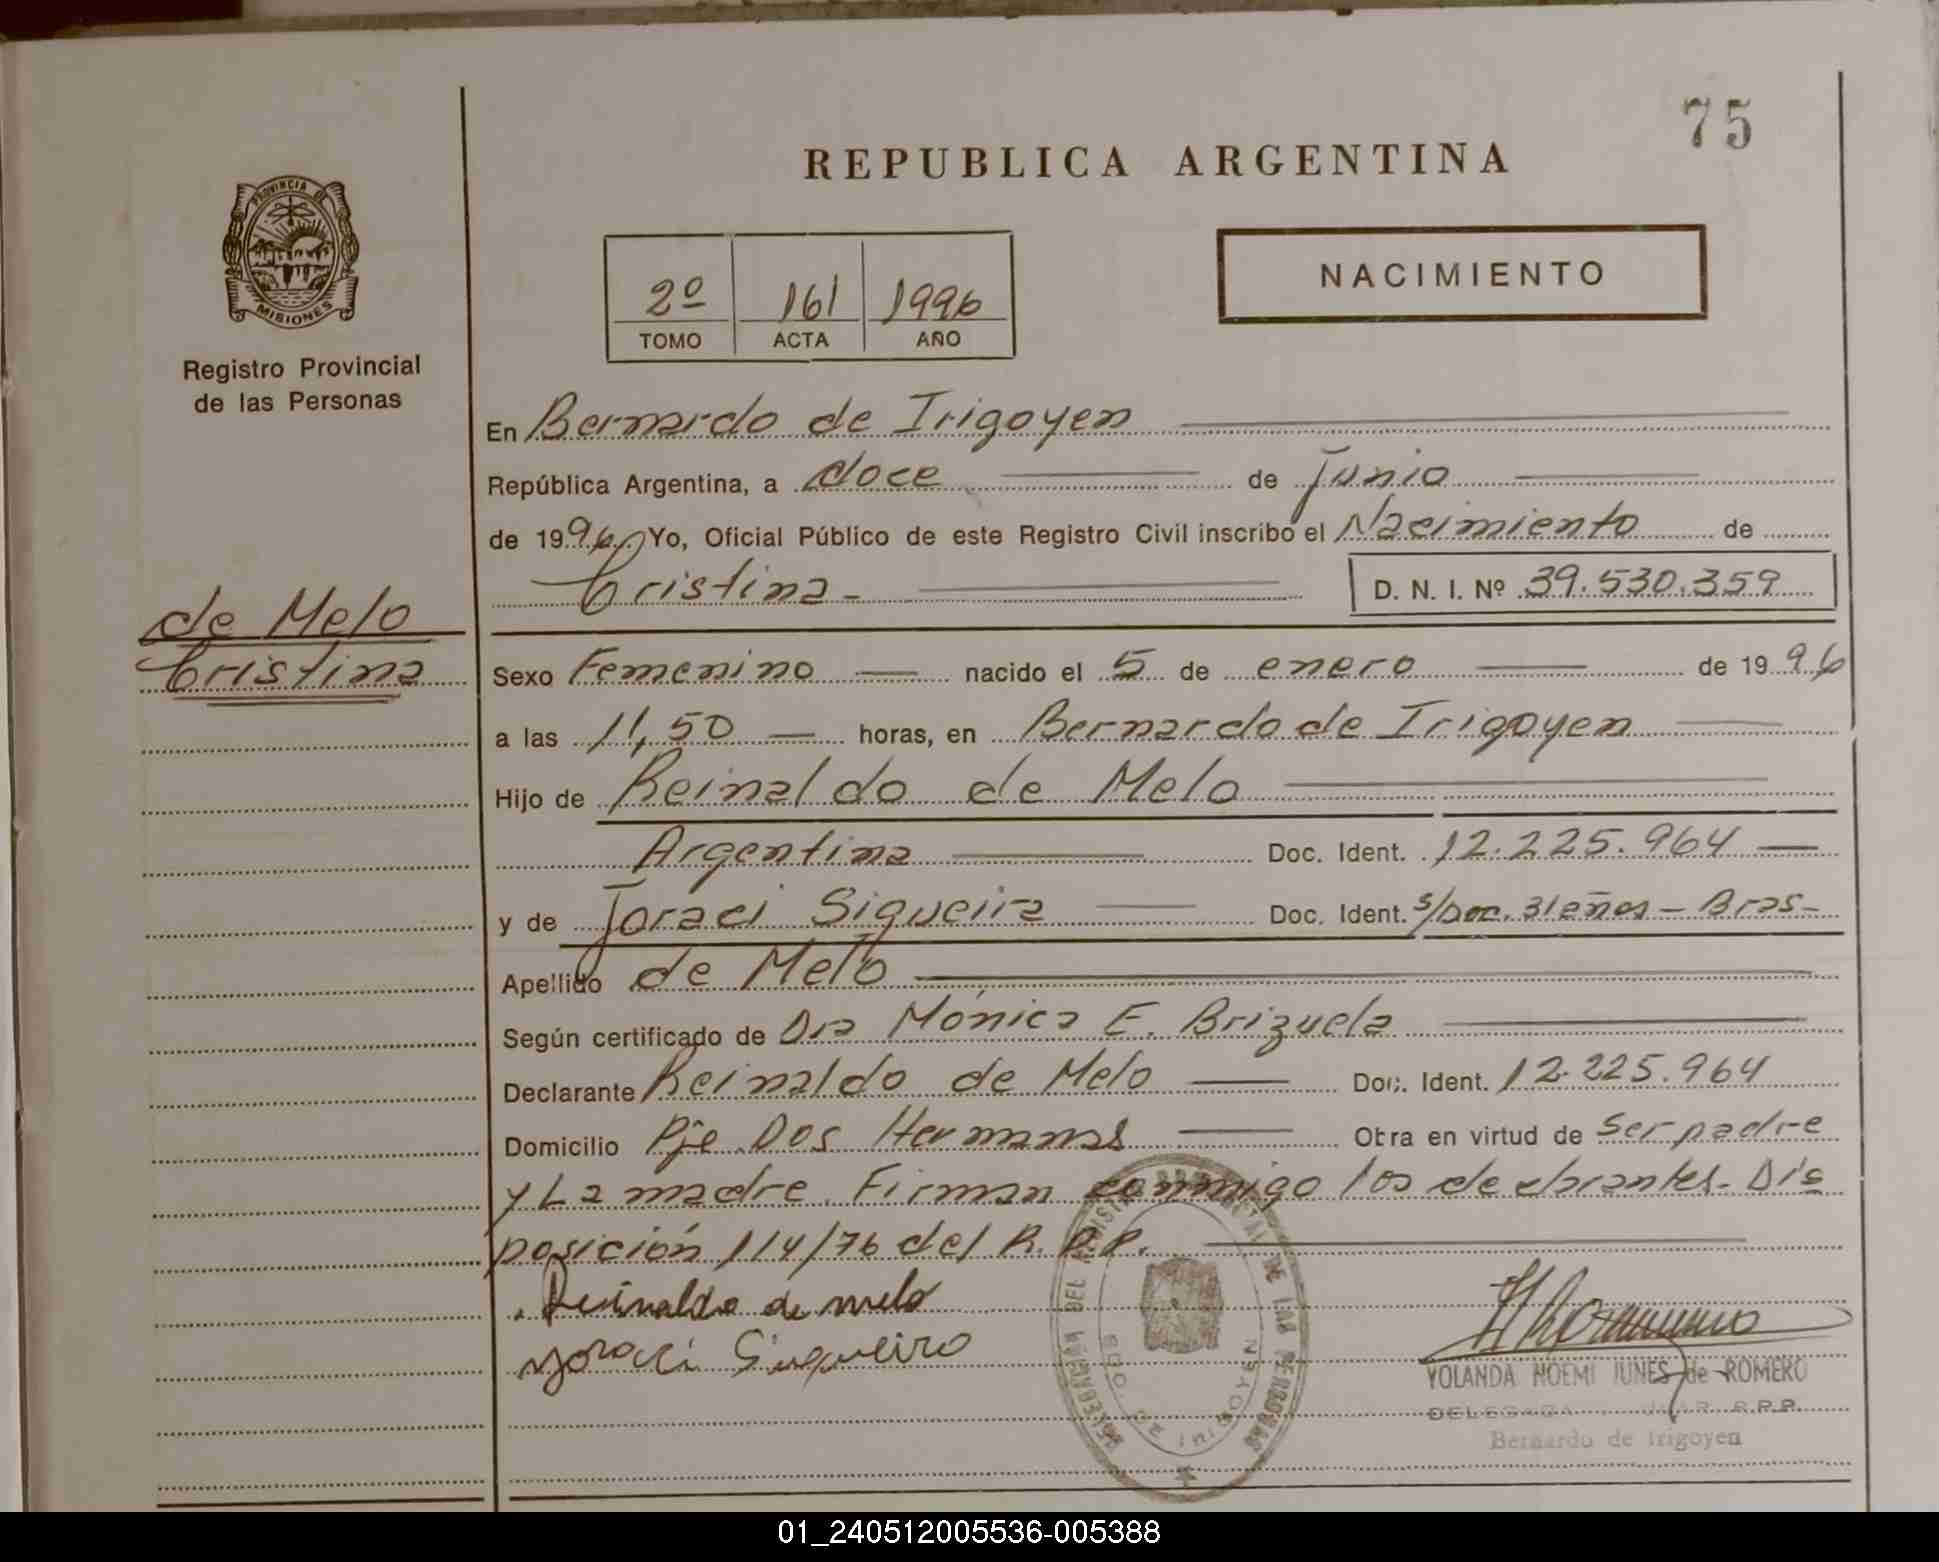 75
REPUBLICA ARGENTINA
PROVINCIA DE
MISIONES
Registro Provincial
de las Personas
2º 161 1996
TOMO ACTA AÑO
NACIMIENTO
En Bernardo de Irigoyen
República Argentina, a doce de Junio
de 1996 Yo, Oficial Público de este Registro Civil inscribo el Nacimiento de
Cristina D. N. I. Nº 39.530.359
de Melo
Cristina
Sexo Femenino nacido el 5 de enero de 1996
a las 11,50 horas, en Bernardo de Irigoyen
Hijo de Reinaldo de Melo
Argentina Doc. Ident. 12.225.964
y de Joraci Sigueira Doc. Ident. s/Doc. 31 años - Bras-
Apellido de Melo
Según certificado de Dra Mónica E. Brizuela
Declarante Reinaldo de Melo Doc. Ident. 12.225.964
Domicilio Pje Dos Hermanas Obra en virtud de ser padre
y La madre. Firman conmigo los declarantes. Dis
posición 114/76 del R.P.P.
Reinaldo de melo
YOLANDA NOEMI JUNES de ROMERO
DELEGADA R.P.P.
Bernardo de Irigoyen
DEL REGISTRO PROVINCIAL DE LAS PERSONAS
BDO. DE IRIGOYEN
01_240512005536-005388